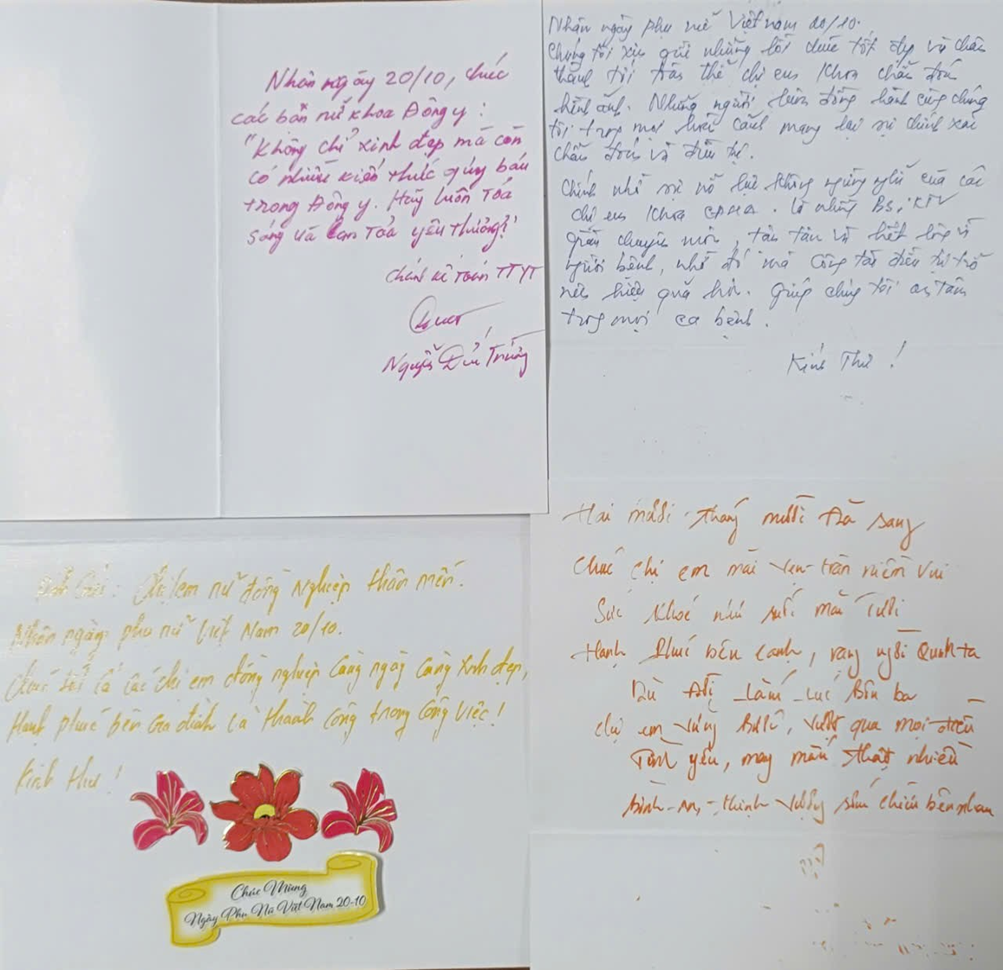 Nhân ngày 20/10, chúc
các bạn nữ khoa Đông y:
"Không chỉ xinh đẹp mà còn
có nhiều kiến thức quý báu
trong Đông y. Hãy luôn Toả
sáng và Lan Toả yêu thương!
TTYT
Nguyễn Đức
Nhân ngày phụ nữ Việt Nam 20/10.
Chúng tôi xin gửi những lời chúc tốt đẹp và chân
thành tới toàn thể chị em khoa chẩn đoán
hình ảnh. Những người luôn đồng hành cùng chúng
tôi trong mọi hoàn cảnh mang lại sự chính xác
chẩn đoán và điều trị.
Chính nhờ sự nỗ lực không ngừng nghỉ của các
chị em khoa CĐHA. Là những BS, KTV
chuyên môn, tận tâm và hết lòng vì
người bệnh, nhờ đó mà công tác điều trị trở
nên hiệu quả hơn. Giúp chúng tôi an tâm
trong mọi ca bệnh.
Kính Thư!
Chị em nữ đồng Nghiệp thân mến.
Nhân ngày phụ nữ Việt Nam 20/10.
Chúc tất cả các chị em đồng nghiệp Càng ngày Càng Xinh đẹp,
Hạnh phúc bên Gia đình Và thành Công trong Công Việc!
Kính thư!
Chúc Mừng
Ngày Phụ Nữ Việt Nam 20-10
Hai mươi tháng mười Đã sang
Chúc chị em mãi tràn niềm Vui
Sức Khoẻ như suối
Hạnh Phúc bên cạnh, rạng ngời Quanh ta
Dù Đôi Lúc Bôn ba
Chị em Vững Bước, Vượt qua mọi điều
Tình yêu, may mắn thật nhiều
Bình An, thịnh Vượng bên nhau